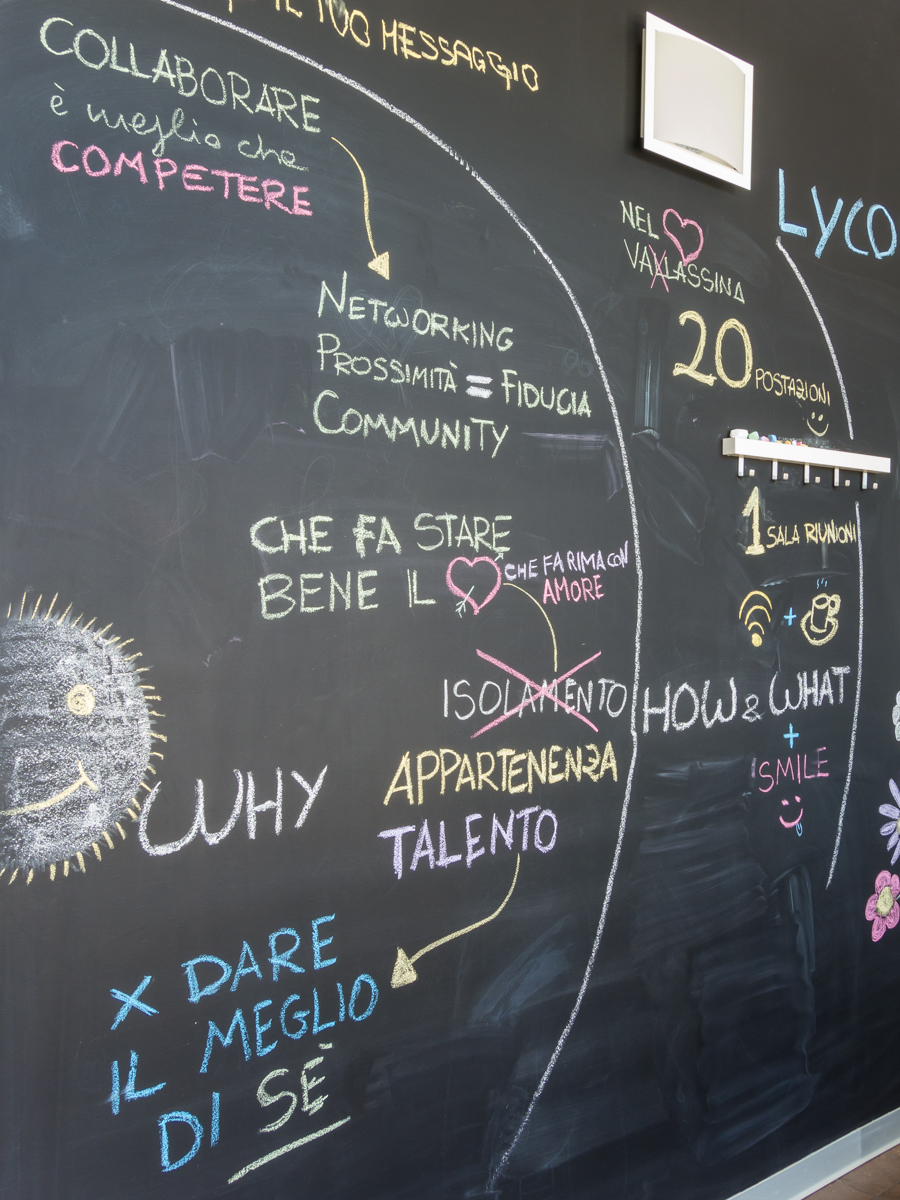 IL TUO MESSAGGIO
COLLABORARE
è meglio che
COMPETERE
NETWORKING
PROSSIMITÀ = FIDUCIA
COMMUNITY
CHE FA STARE
BENE IL
CHE FA RIMA CON
AMORE
ISOLAMENTO
APPARTENENZA
TALENTO
WHY
X DARE
IL MEGLIO
DI SÈ
LYCO
NEL
VALLASSINA
20 POSTAZIONI
1 SALA RIUNIONI
+
HOW & WHAT
+
SMILE